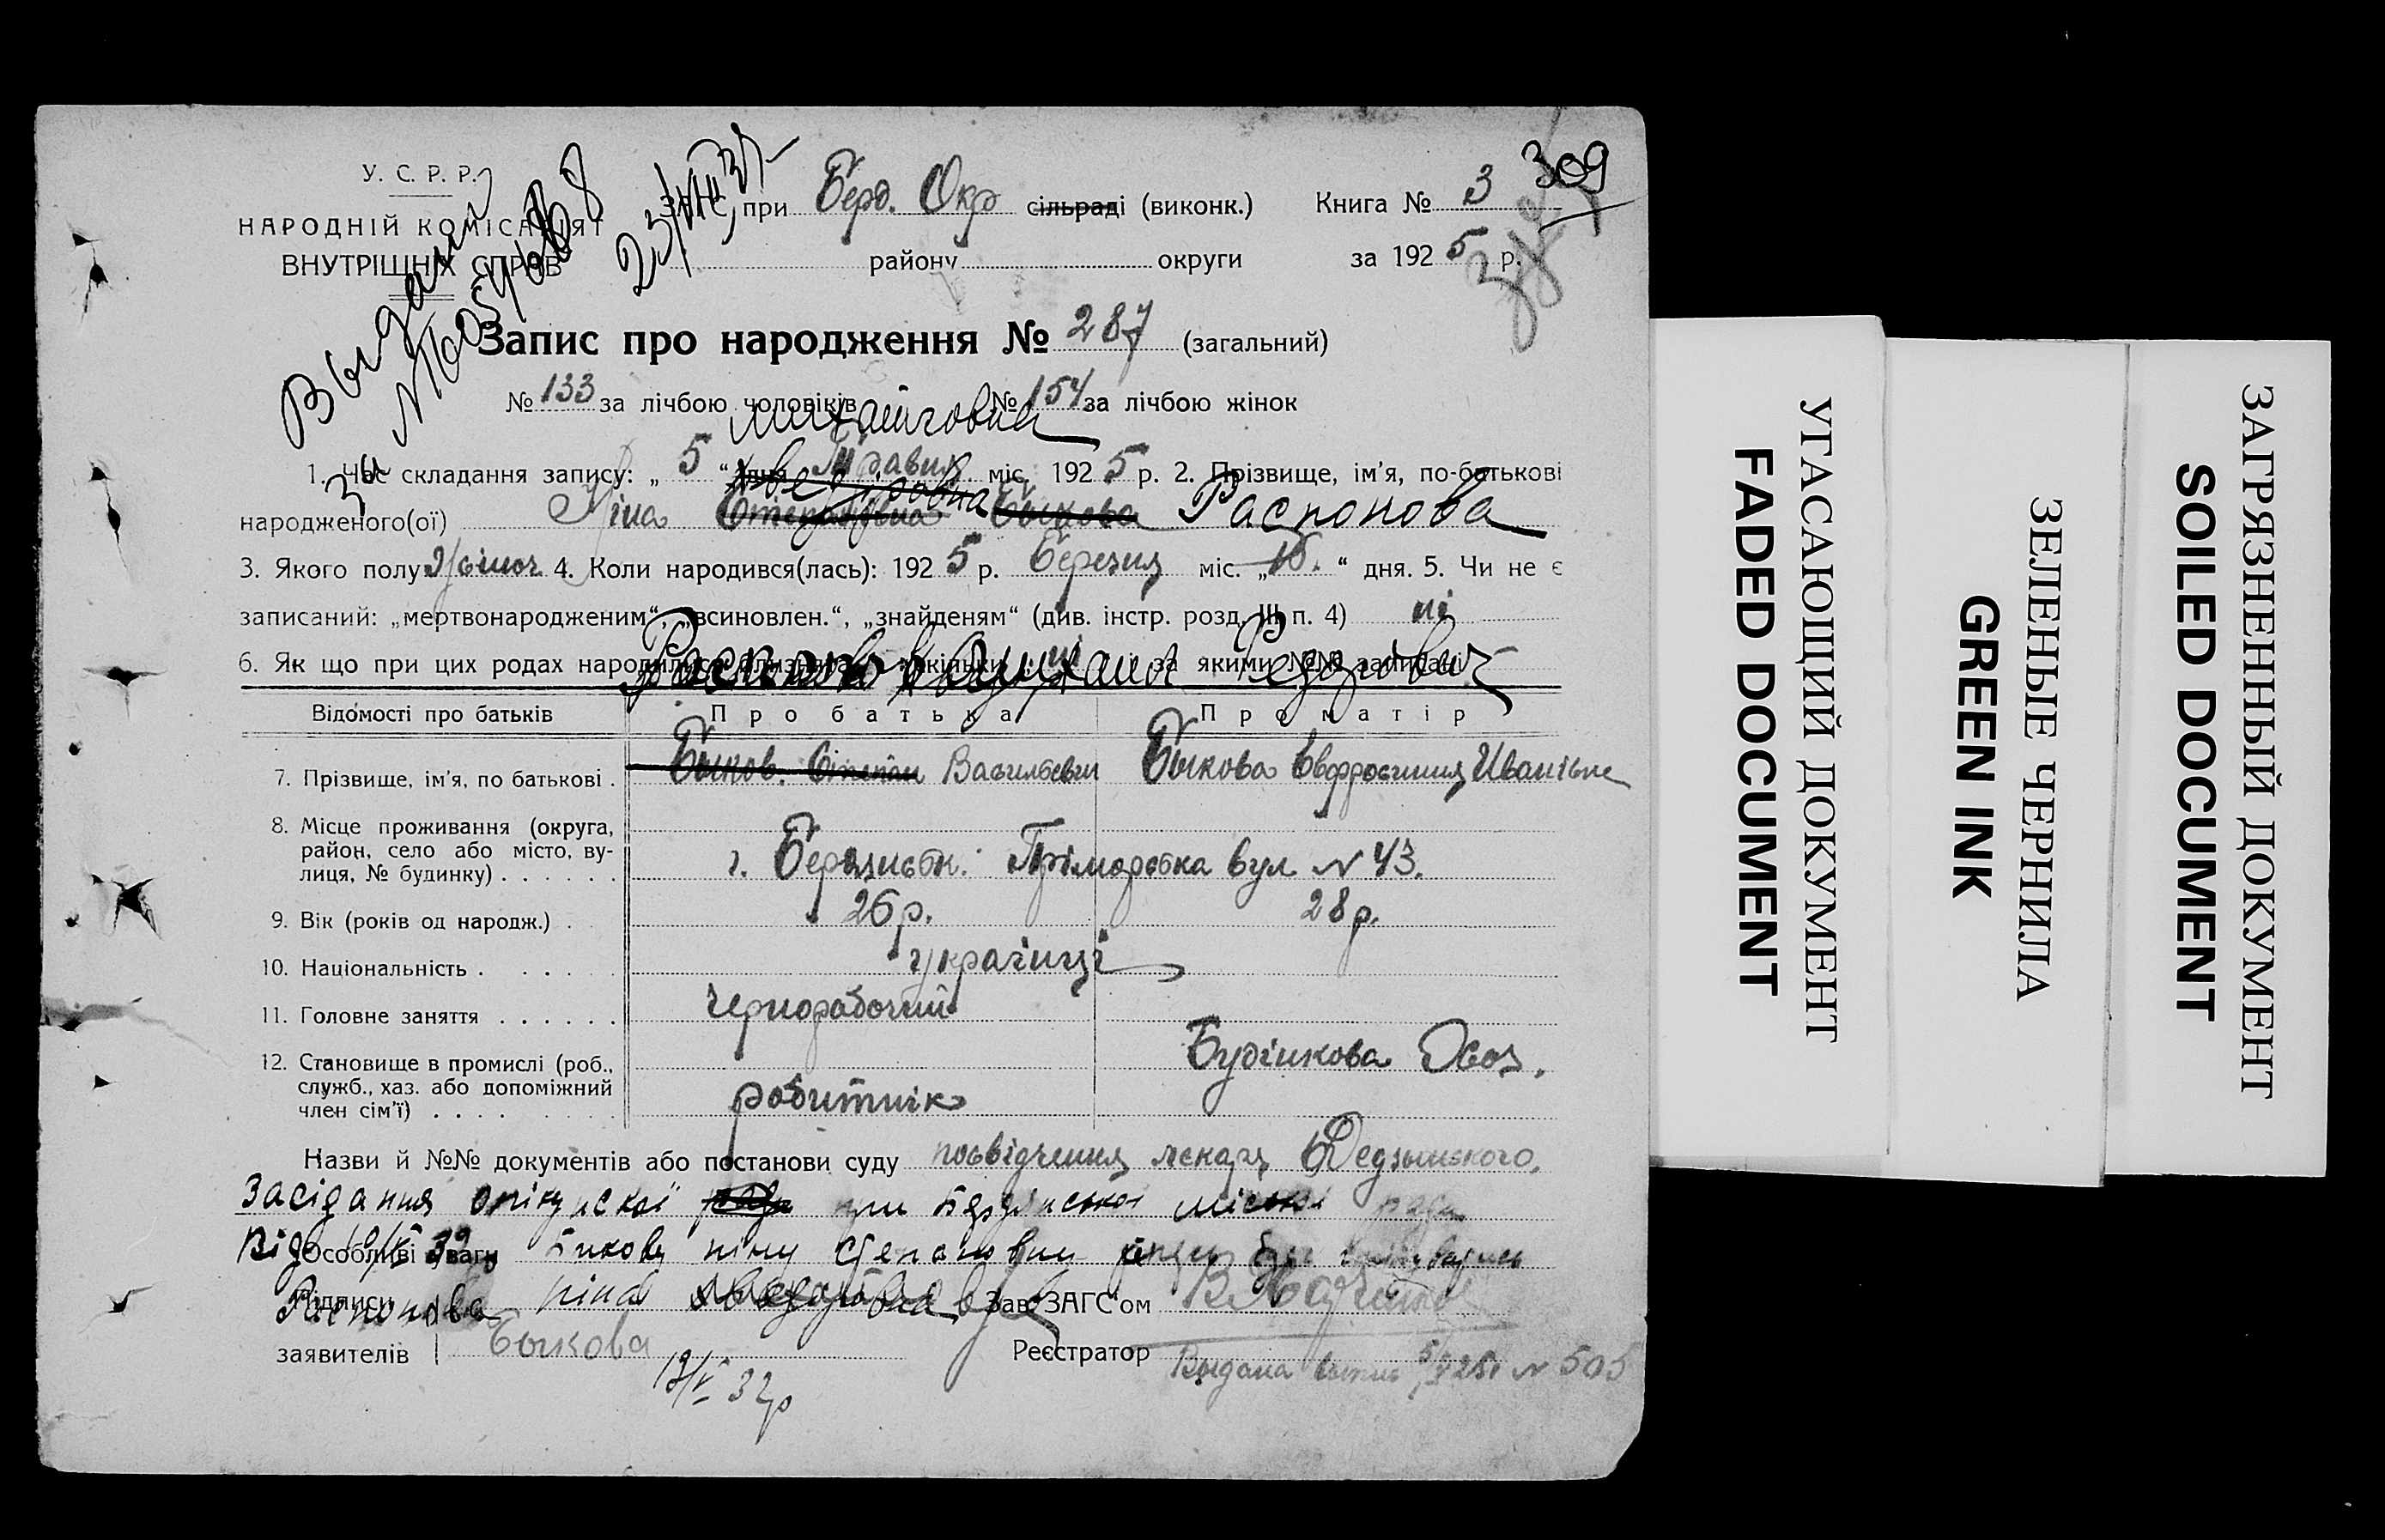 У. С. Р. Р.
НАРОДНІЙ КОМІСАРІЯТ
ВНУТРІШНІХ СПРАВ
Выдан
23/VIII 37
ЗАГС при Берд. Окр сільраді (виконк.) Книга № 3 309
району округи за 1925 р.
Запис про народження № 287 (загальний)
№ 133 за лічбою чоловіків № 154 за лічбою жінок
Михайловна
1. Час складання запису: „ 5 “ дня Травня міс. 1925 р. 2. Прізвище, ім’я, по-батькові
народженого(ої) Ніна Степановна Быкова Распопова
3. Якого полу жіноч. 4. Коли народився(лась): 1925 р. Березня міс. „ 15. “ дня. 5. Чи не є
записаний: „мертвонародженим“, „всиновлен.“, „знайденям“ (див. інстр. розд. III п. 4) ні
6. Як що при цих родах народилися близнята, скільки ні і за якими №№ записані
Распопов Михаил Федорович
Відомості про батьків Про батька Про матір
7. Прізвище, ім’я, по батькові . Быков. Степан Васильевич Быкова Ефросиния Иванівна
8. Місце проживання (округа,
район, село або місто, ву-
лиця, № будинку) . . . . . . г. Бердянськ. Пріморська вул. N 43.
9. Вік (років од народж.) . 26 р. 28 р.
10. Національність . . . . . українці
11. Головне заняття . . . . . . Чернорабочий
12. Становище в промислі (роб.,
служб., хаз. або допоміжний
член сім’ї) . . . . робитнік Будінкова Хоз.
Назви й №№ документів або постанови суду посвідчення лекаря
Засідання опікунскої при Бердянської міської ради
Від 19/V 32 Особливі уваги Бикову Ніну Степановну
Распопова Ніна
Підписи Зав. ЗАГС’ом
заявителів Быкова Реєстратор
19/V 32р Выдана выпись 5/V 25 N 505
УГАСАЮЩИЙ ДОКУМЕНТ
FADED DOCUMENT
ЗЕЛЕНЫЕ ЧЕРНИЛА
GREEN INK
ЗАГРЯЗНЕННЫЙ ДОКУМЕНТ
SOILED DOCUMENT